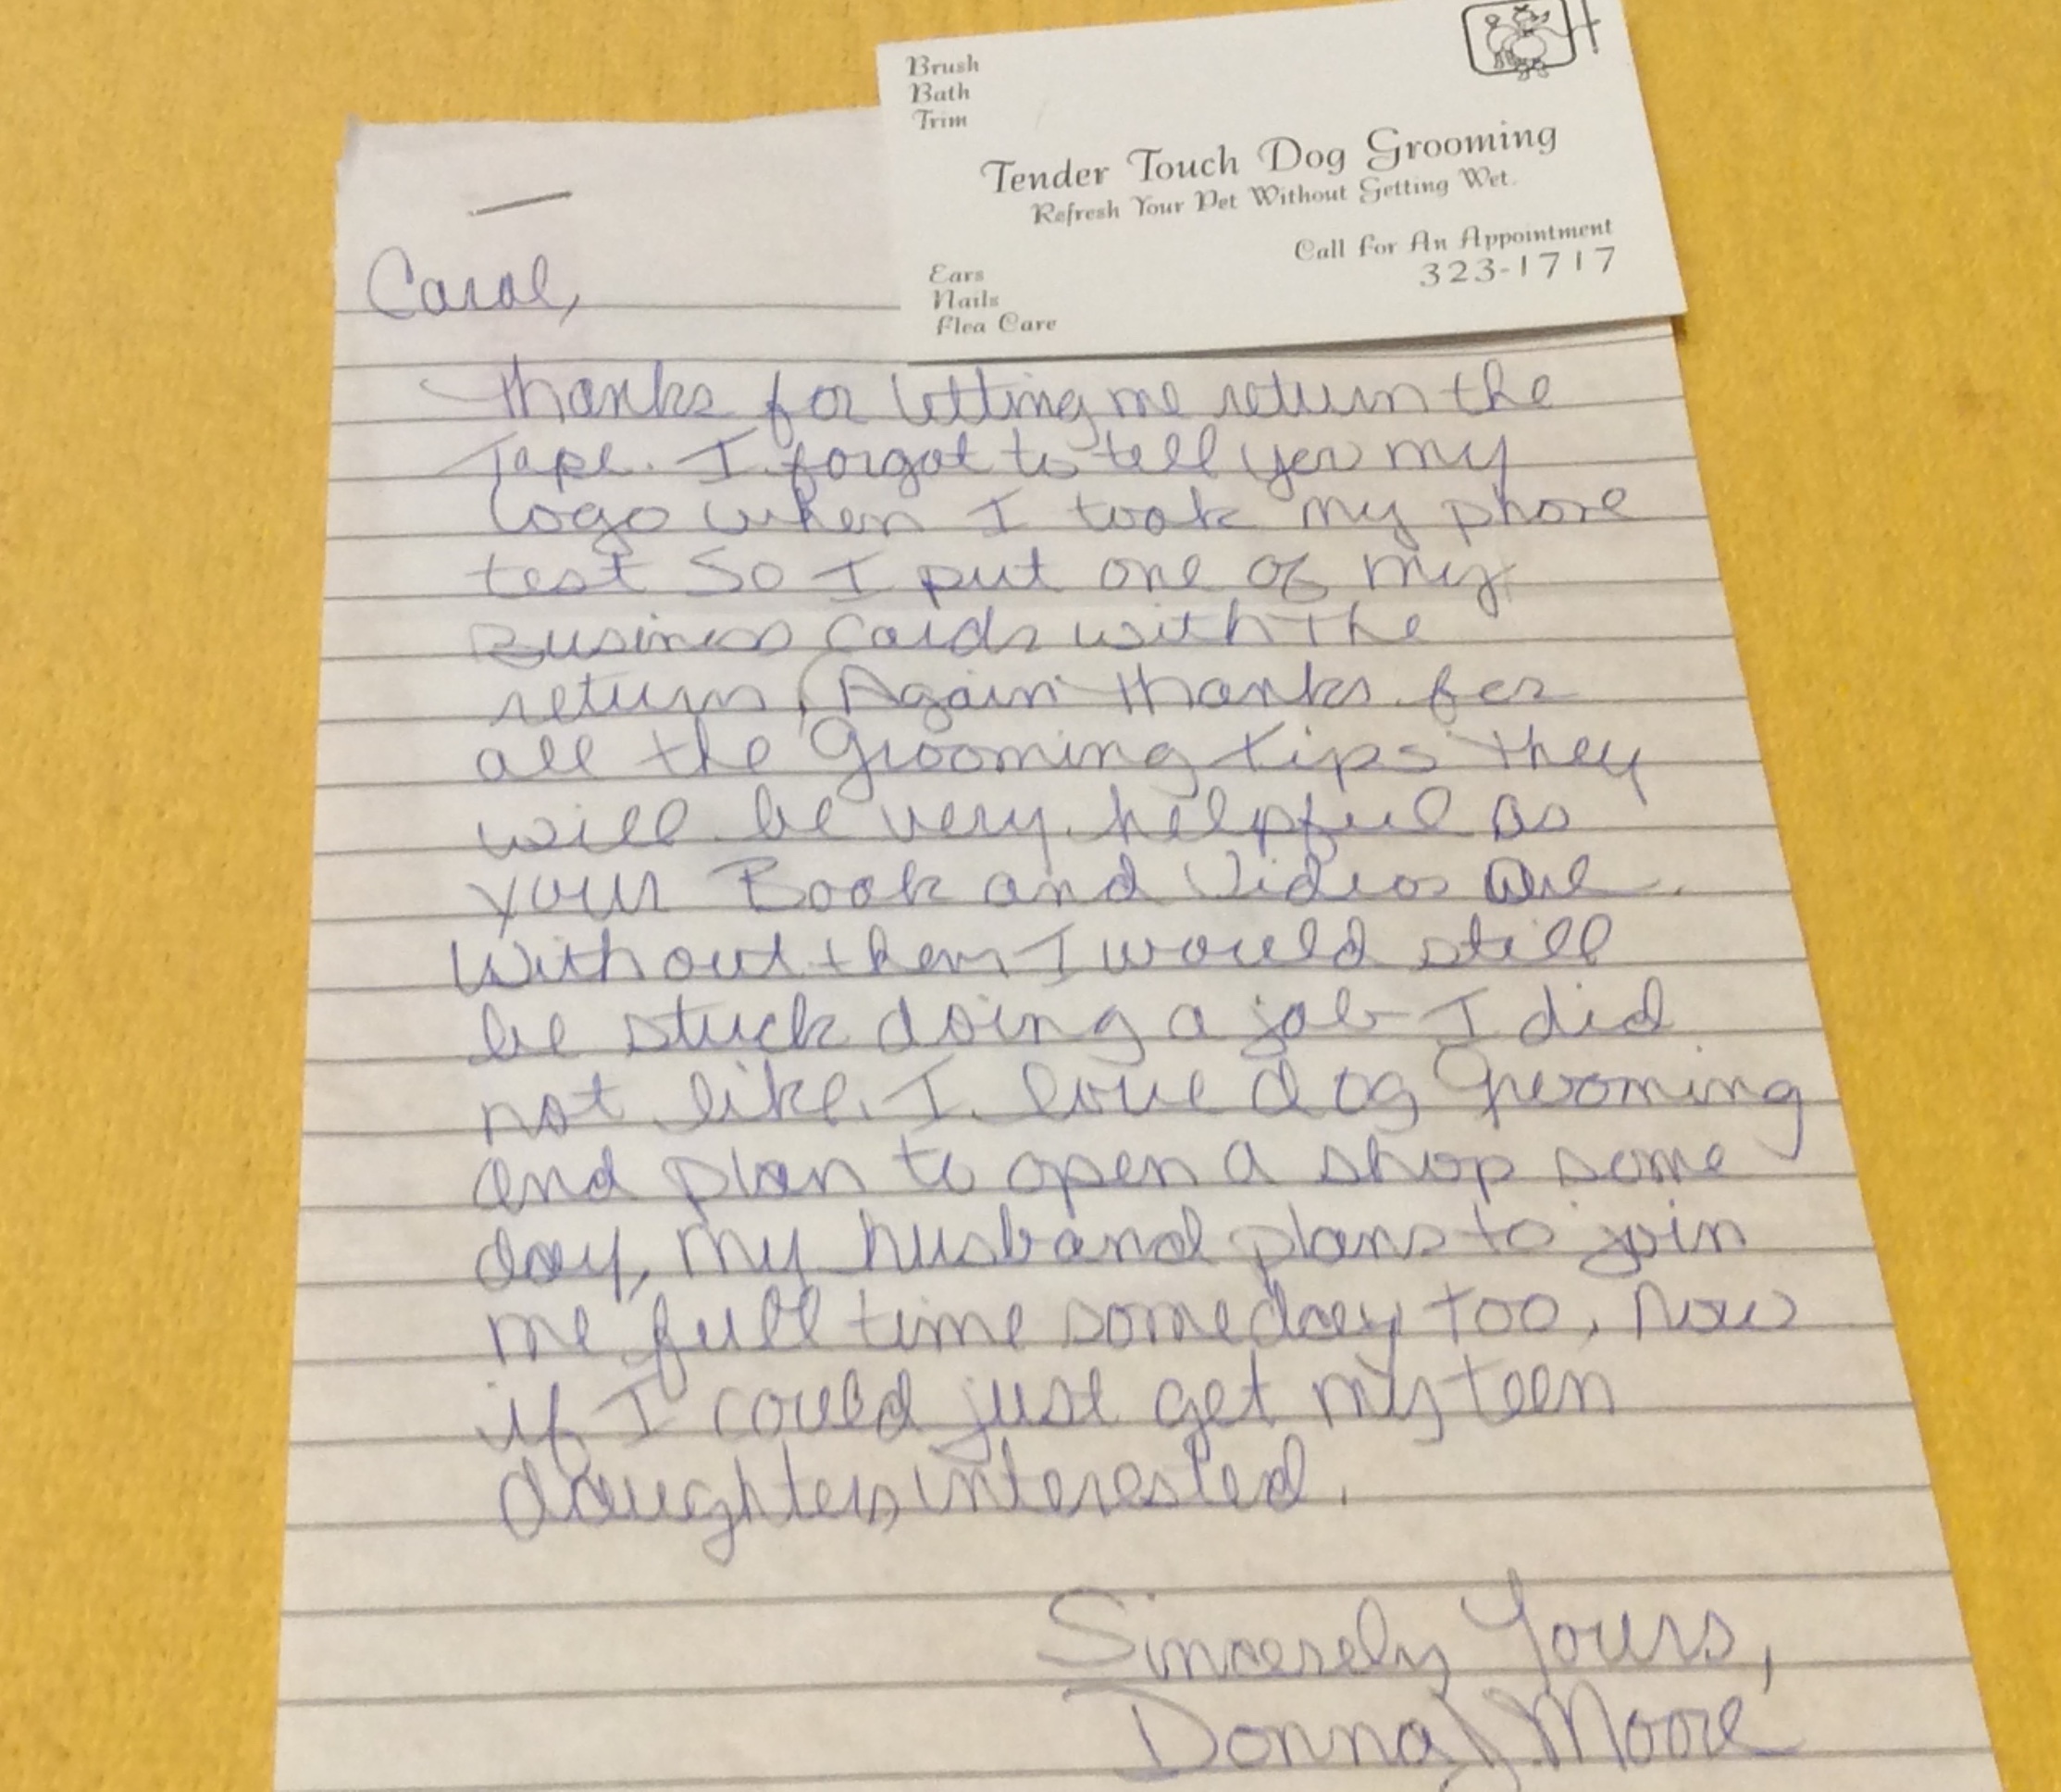 Brush
Bath
Trim
Tender Touch Dog Grooming
Refresh Your Pet Without Getting Wet.
Call For An Appointment
323-1717
Ears
Nails
Flea Care
Carol,
Thanks for letting me return the
Tape. I forgot to tell you my
logo when I took my phone
test So I put one of my
Business Cards with the
return, Again thanks for
all the Grooming tips they
will be very helpful as
your Book and Videos are.
Without them I would still
be stuck doing a job I did
not like. I love dog Grooming
and plan to open a shop some
day, my husband plans to join
me full time someday too, Now
if I could just get my teen
daughters interested.
Sincerely Yours,
Donna Moore